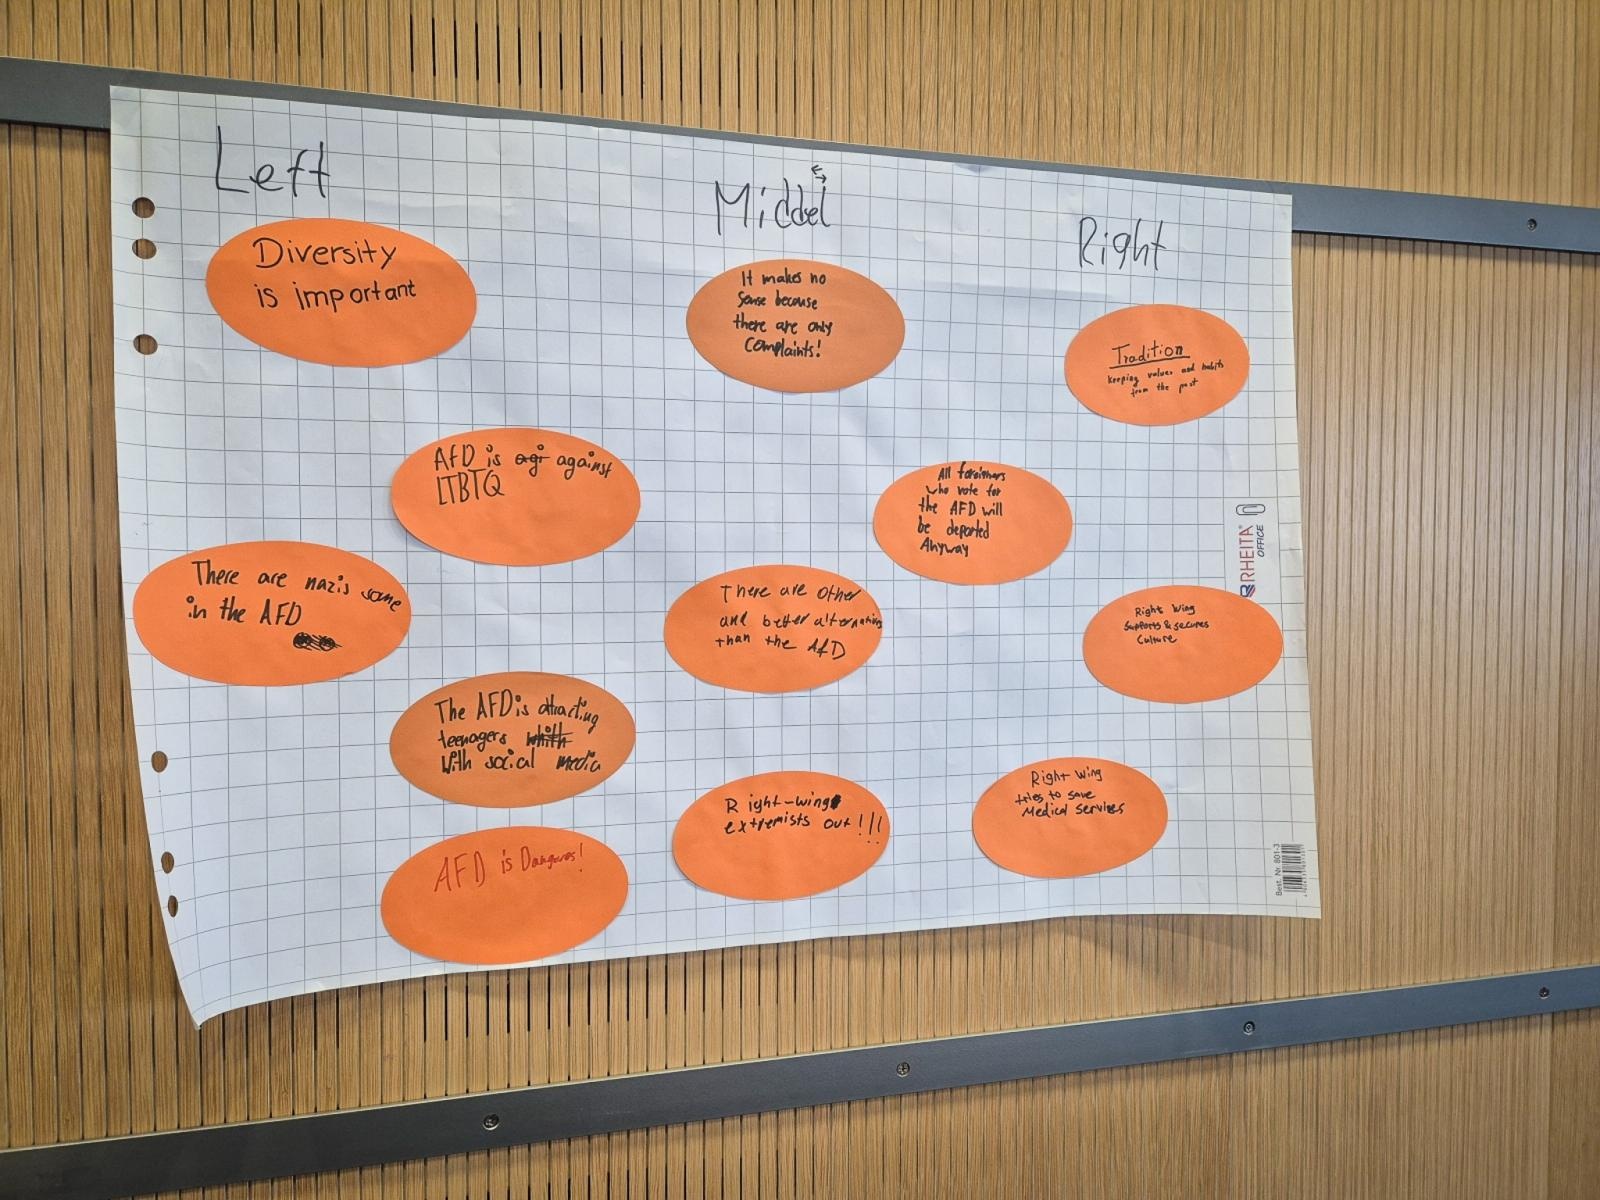 Left
Middel
Right
Diversity
is important
It makes no
sense because
there are only
complaints!
Tradition
keeping values and habits
from the past
AfD is agi against
LTBTQ
All foreihners
who vote for
the AFD will
be deported
Anyway
There are nazis some
in the AFD
There are other
and better alternatives
than the AfD
Right wing
supports & secures
Culture
The AFD is attracting
teenagers
with social media
Right-wing
extremists out!!!
Right wing
tries to save
Medical services
AFD is Dangerous!
RHEITA
OFFICE
Best. Nr. 801-3